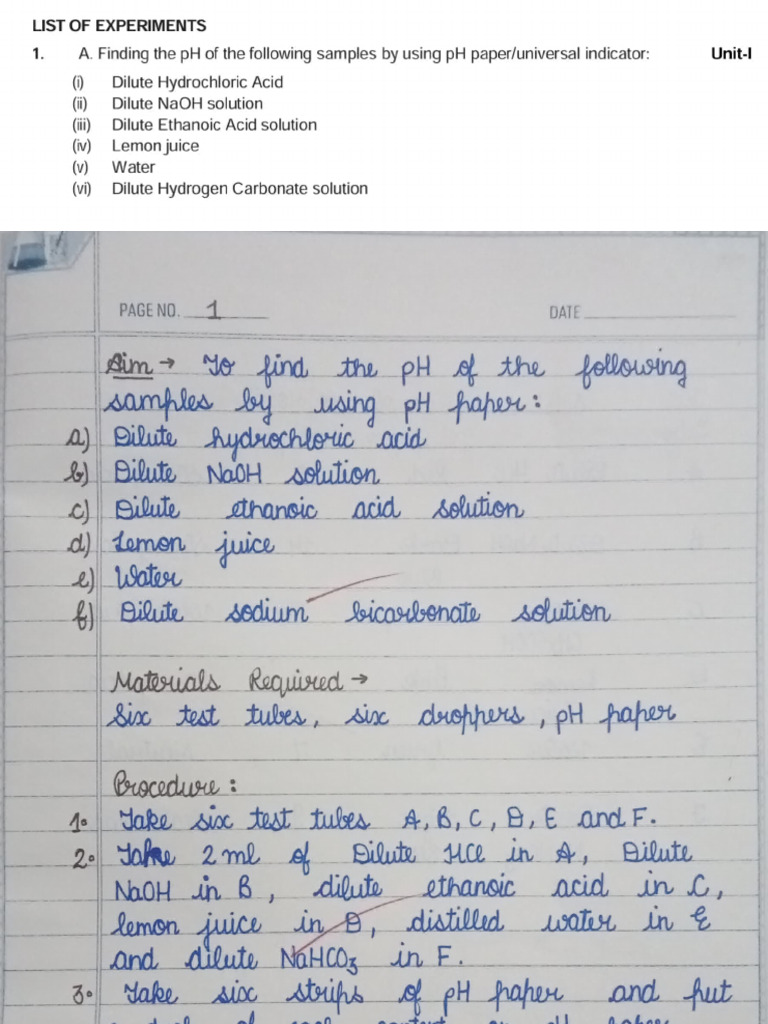 LIST OF EXPERIMENTS
1. A. Finding the pH of the following samples by using pH paper/universal indicator: Unit-I
(i) Dilute Hydrochloric Acid
(ii) Dilute NaOH solution
(iii) Dilute Ethanoic Acid solution
(iv) Lemon juice
(v) Water
(vi) Dilute Hydrogen Carbonate solution
PAGE NO. 1 DATE
Aim → To find the pH of the following
samples by using pH paper:
a) Dilute hydrochloric acid
b) Dilute NaOH solution
c) Dilute ethanoic acid solution
d) Lemon juice
e) Water
f) Dilute sodium bicarbonate solution
Materials Required →
Six test tubes, six droppers, pH paper
Procedure:
1. Take six test tubes A, B, C, D, E and F.
2. Take 2 ml of Dilute HCl in A, Dilute
NaOH in B, dilute ethanoic acid in C,
lemon juice in D, distilled water in E
and dilute NaHCO3 in F.
3. Take six strips of pH paper and put